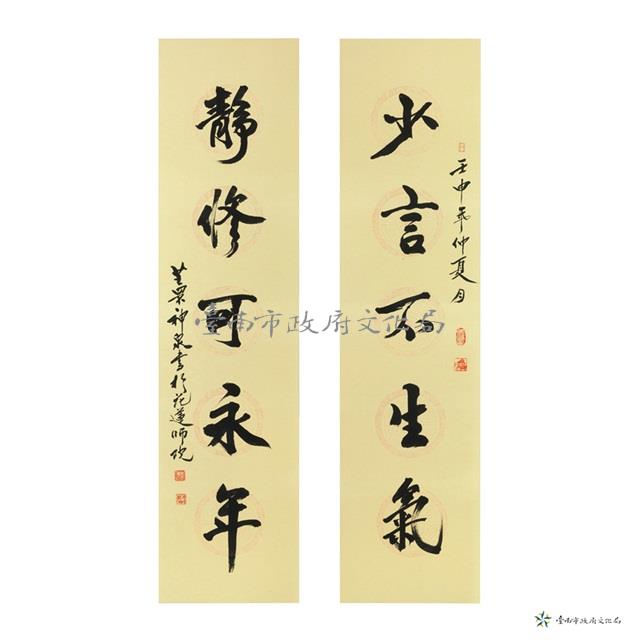 少言不生氣
壬申年仲夏月
靜修可永年
書於花蓮師院
臺南市政府文化局
臺南市政府文化局